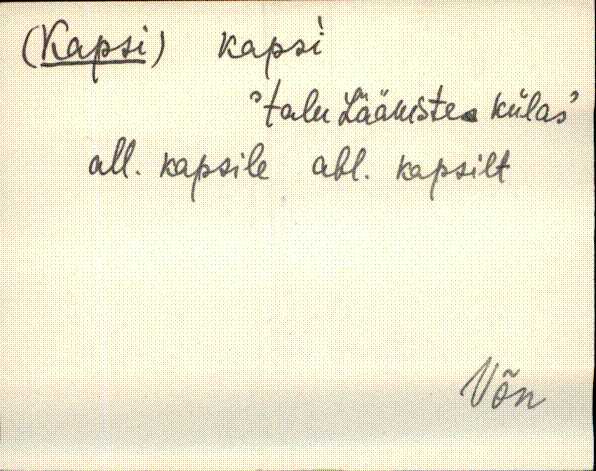 (Kapsi) kapsi
'talu Lääniste külas'
all. kapsile abl. kapsilt
Võn